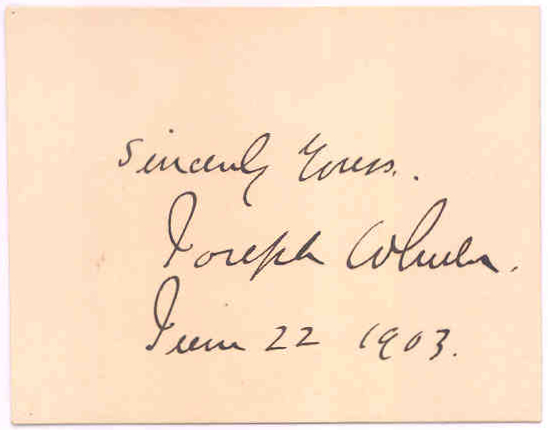 Sincerely Yours.
Joseph Wheeler.
June 22 1903.